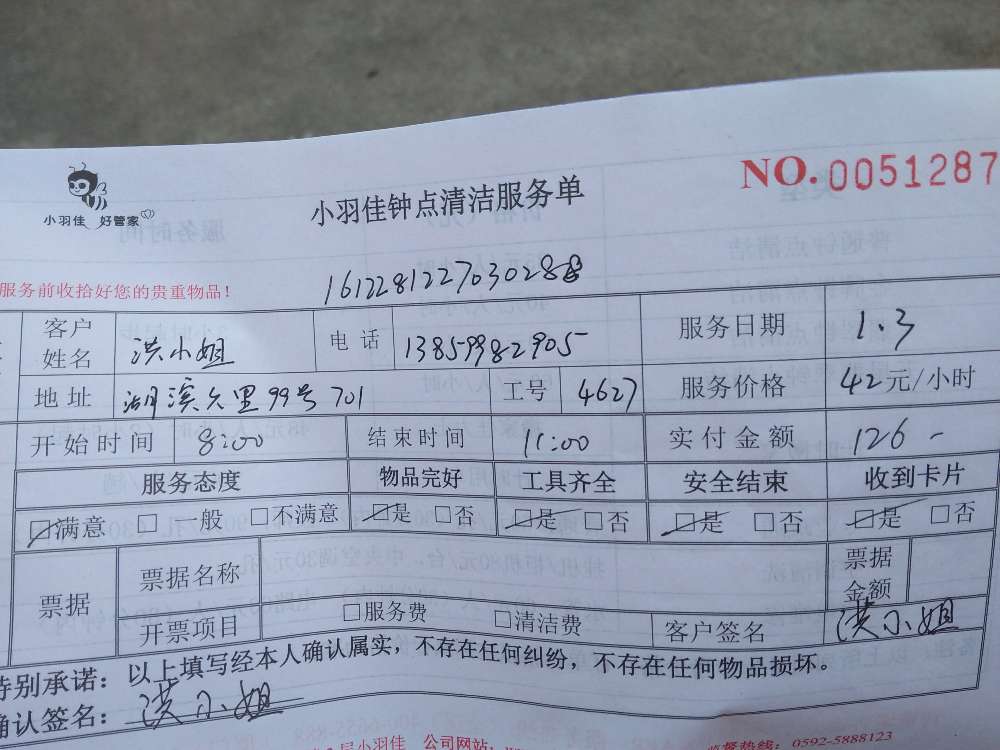 小羽佳 好管家
小羽佳钟点清洁服务单
NO.0051287
服务前收拾好您的贵重物品!
161228122703028
客户姓名 洪小姐 电话 13859982905 服务日期 1.3
地址 湖滨久里99号701 工号 4627 服务价格 42元/小时
开始时间 8:00 结束时间 11:00 实付金额 126-
服务态度 物品完好 工具齐全 安全结束 收到卡片
☑满意 □一般 □不满意 ☑是 □否 ☑是 □否 ☑是 □否 ☑是 □否
票据 票据名称 票据金额
开票项目 □服务费 □清洁费 客户签名 洪小姐
特别承诺：以上填写经本人确认属实，不存在任何纠纷，不存在任何物品损坏。
确认签名：洪小姐
小羽佳 公司网站: 监督热线：0592-5888123